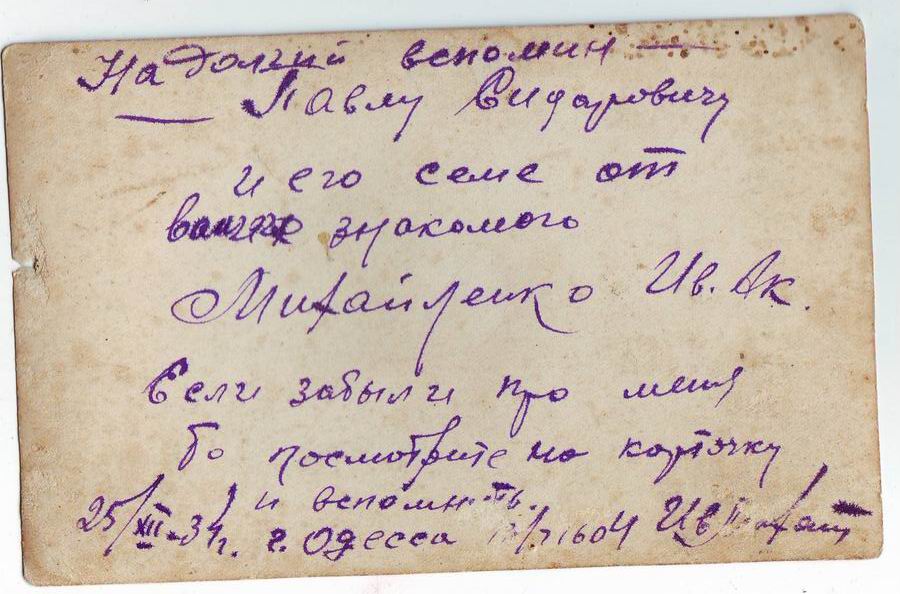 На Долгий вспомин —
— Павлу Сидоровичу
и его семе от
вашего знакомого
Михайленко Ив. Ак.
Если забыли про меня
То посмотрите на карточку
и вспомнить.
25/XII-34г. г. Одесса Ив